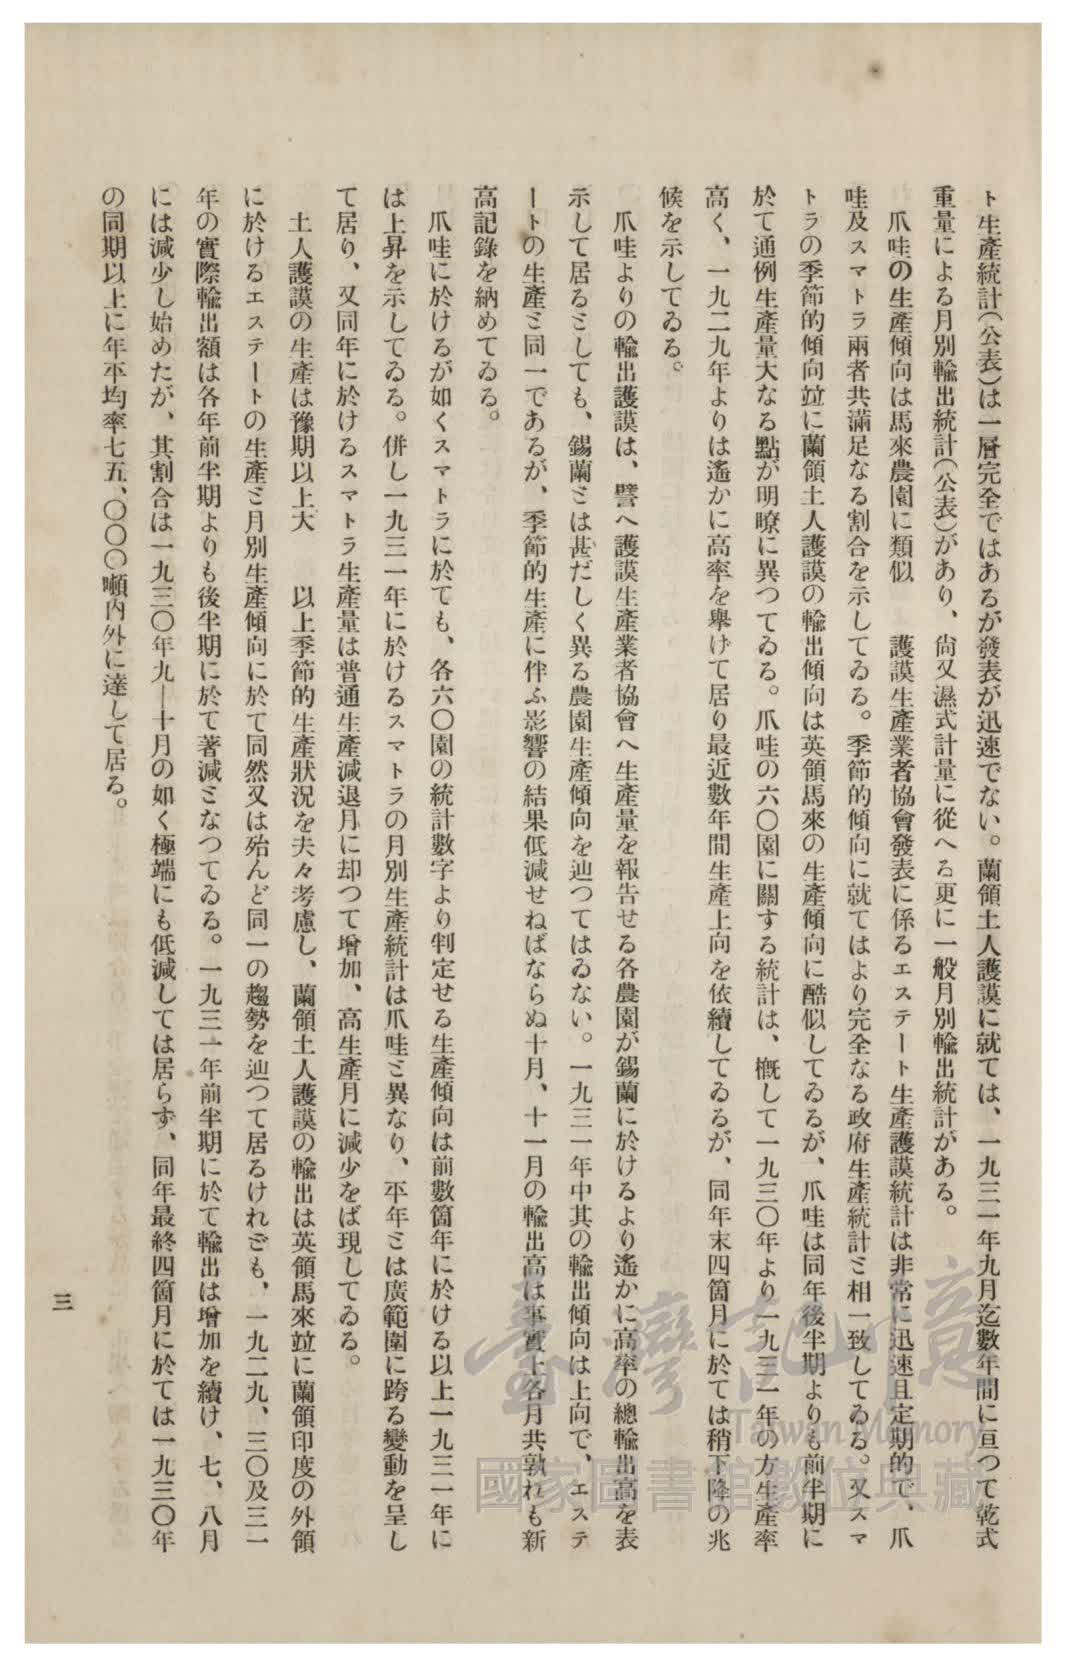 ト生產統計(公表)は一層完全ではあるが發表が迅速でない。蘭領土人護謨に就ては、一九三一年九月迄數年間に亘つて乾式
重量による月別輸出統計(公表)があり、尙又濕式計量に從へる更に一般月別輸出統計がある。
爪哇の生產傾向は馬來農園に類似　護謨生產業者協會發表に係るエステート生產護謨統計は非常に迅速且定期的で、爪
哇及スマトラ兩者共滿足なる割合を示してゐる。季節的傾向に就てはより完全なる政府生產統計と相一致してゐる。又スマ
トラの季節的傾向竝に蘭領土人護謨の輸出傾向は英領馬來の生產傾向に酷似してゐるが、爪哇は同年後半期よりも前半期に
於て通例生產量大なる點が明瞭に異つてゐる。爪哇の六〇園に關する統計は、槪して一九三〇年より一九三一年の方生產率
高く、一九二九年よりは遙かに高率を擧げて居り最近數年間生產上向を依續してゐるが、同年末四箇月に於ては稍下降の兆
候を示してゐる。
爪哇よりの輸出護謨は、譬へ護謨生產業者協會へ生產量を報告せる各農園が錫蘭に於けるより遙かに高率の總輸出高を表
示して居るとしても、錫蘭とは甚だしく異る農園生產傾向を辿つてはゐない。一九三一年中其の輸出傾向は上向で、エステ
ートの生產と同一であるが、季節的生產に伴ふ影響の結果低減せねばならぬ十月、十一月の輸出高は事實上各月共孰れも新
高記錄を納めてゐる。
爪哇に於けるが如くスマトラに於ても、各六〇園の統計數字より判定せる生產傾向は前數箇年に於ける以上一九三一年に
は上昇を示してゐる。併し一九三一年に於けるスマトラの月別生產統計は爪哇と異なり、平年とは廣範圍に跨る變動を呈し
て居り、又同年に於けるスマトラ生產量は普通生產減退月に却つて增加、高生產月に減少をば現してゐる。
土人護謨の生產は豫期以上大　以上季節的生產狀況を夫々考慮し、蘭領土人護謨の輸出は英領馬來竝に蘭領印度の外領
に於けるエステートの生產と月別生產傾向に於て同然又は殆んど同一の趨勢を辿つて居るけれども、一九二九、三〇及三一
年の實際輸出額は各年前半期よりも後半期に於て著減となつてゐる。一九三一年前半期に於て輸出は增加を續け、七、八月
には減少し始めたが、其割合は一九三〇年九—十月の如く極端にも低減しては居らず、同年最終四箇月に於ては一九三〇年
の同期以上に年平均率七五、〇〇〇噸內外に達して居る。
三
臺灣記憶
Taiwan Memory
國家圖書館數位典藏